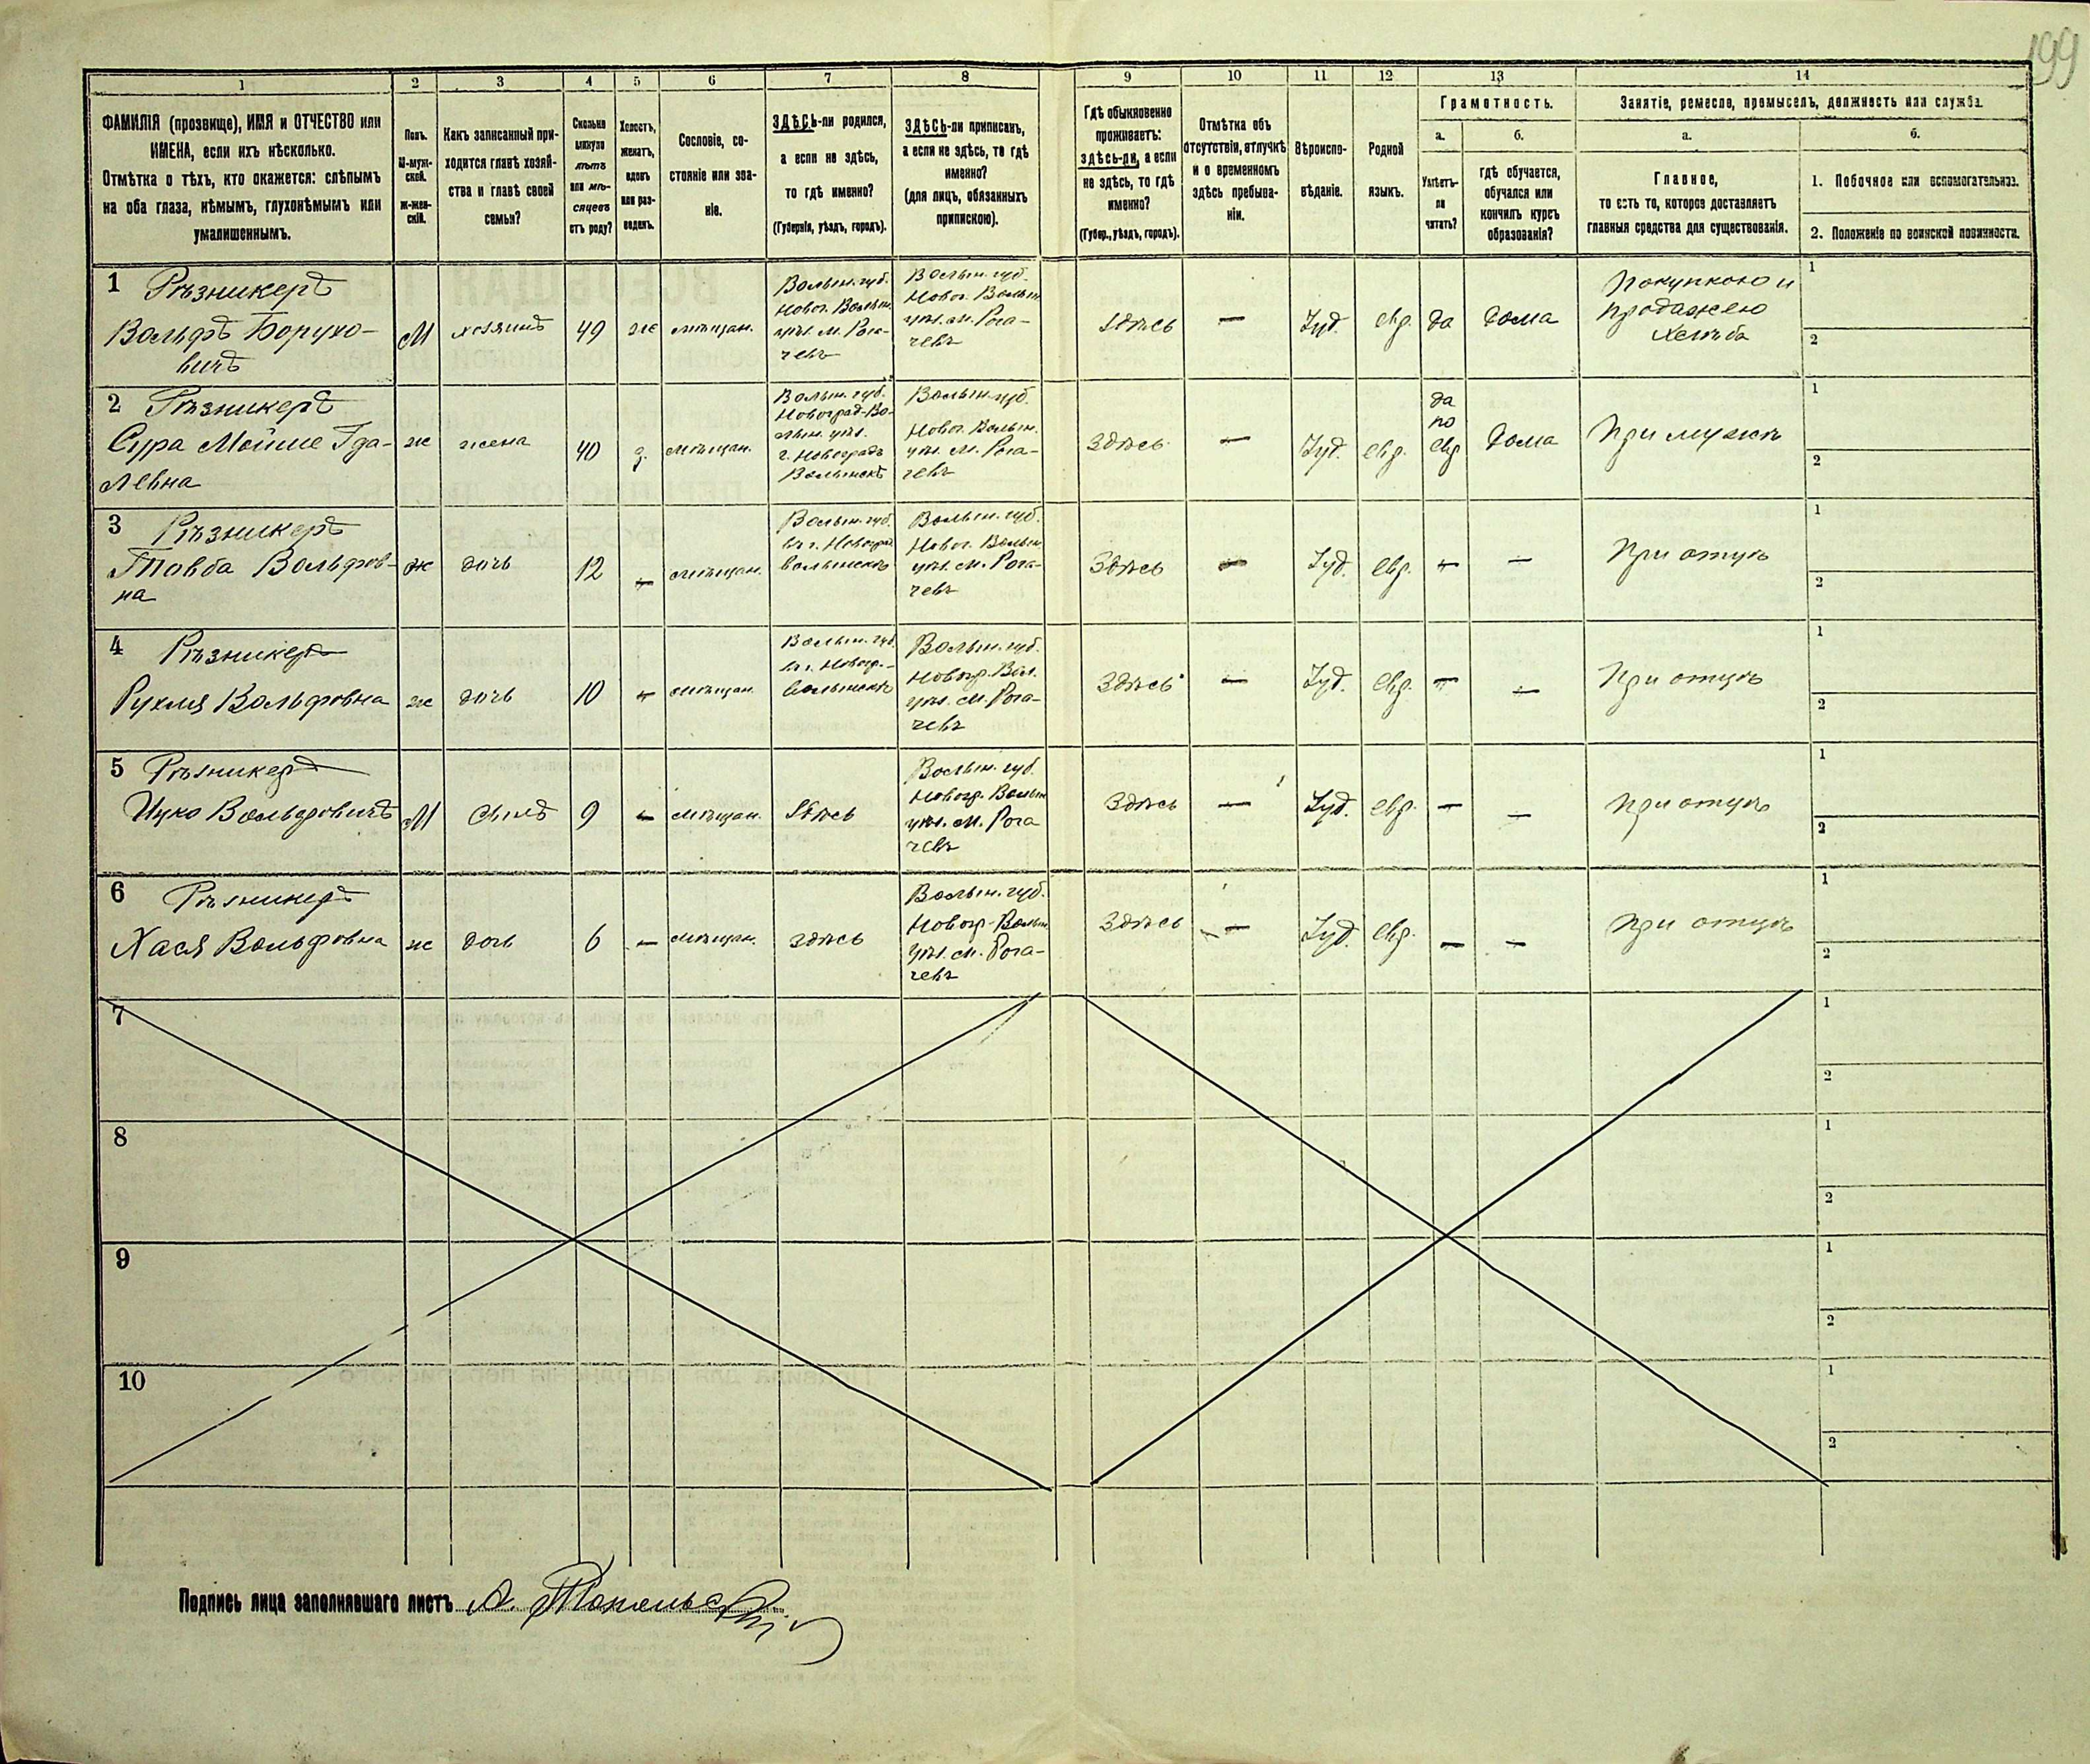 199
1 2 3 4 5 6 7 8 9 10 11 12 13 14
ФАМИЛІЯ (прозвище), ИМЯ и ОТЧЕСТВО или
ИМЕНА, если ихъ нѣсколько.
Отмѣтка о тѣхъ, кто окажется: слѣпымъ
на оба глаза, нѣмымъ, глухонѣмымъ или
умалишеннымъ.
Полъ.
М-муж-
ской.
Ж-жен-
скій.
Какъ записанный при-
ходится главѣ хозяй-
ства и главѣ своей
семьи?
Сколько
минуло
лѣтъ
или мѣ-
сяцевъ
отъ роду?
Холостъ,
женатъ,
вдовъ
или раз-
веденъ.
Сословіе, со-
стояніе или зва-
ніе.
ЗДѢСЬ-ли родился,
а если не здѣсь,
то гдѣ именно?
(Губернія, уѣздъ, городъ).
ЗДѢСЬ-ли приписанъ,
а если не здѣсь, то гдѣ
именно?
(для лицъ, обязанныхъ
припискою).
Гдѣ обыкновенно
проживаетъ:
здѣсь-ли, а если
не здѣсь, то гдѣ
именно?
(Губер., уѣздъ, городъ).
Отмѣтка объ
отсутствіи, отлучкѣ
и о временномъ
здѣсь пребыва-
ніи.
Вѣроиспо-
вѣданіе.
Родной
языкъ.
Грамотность.
а.
Умѣетъ-
ли
читать?
б.
гдѣ обучается,
обучался или
кончилъ курсъ
образованія?
Занятіе, ремесло, промыселъ, должность или служба.
а.
Главное,
то есть то, которое доставляетъ
главныя средства для существованія.
б.
1. Побочное или вспомогательное.
2. Положеніе по воинской повинности.
1 Рѣзникеръ
Вольфъ Борухо-
вичъ
М
хозяинъ
49
же
мѣщан.
Волын. губ.
Новог. Волын.
уѣз. м. Рога-
чевъ
Волын. губ.
Новог. Волын.
уѣз. м. Рога-
чевъ
Здѣсь
—
Іуд.
евр.
да
дома
Покупкою и
продажею
хлѣба
1
2
2 Рѣзникеръ
Сура Мойше Гда-
левна
ж
жена
40
з.
мѣщан.
Волын. губ.
Новоград-Во-
лын. уѣз.
г. Новоградъ
Волынскъ
Волын. губ.
Новог. Волын.
уѣз. м. Рога-
чевъ
Здѣсь
—
Іуд.
евр.
да
по
евр
дома
При мужѣ
1
2
3 Рѣзникеръ
Товба Вольфов-
на
ж
дочь
12
—
мѣщан.
Волын. губ.
въ г. Новоград
волынскъ
Волын. губ.
Новог. Волын.
уѣз. м. Рога-
чевъ
Здѣсь
—
Іуд.
евр.
—
—
При отцѣ
1
2
4 Рѣзникеръ
Рухля Вольфовна
ж
дочь
10
—
мѣщан.
Волын. губ.
въ г. Новогр.-
волынскъ
Волын. губ.
Новогр. Вол.
уѣз. м. Рога-
чевъ
Здѣсь
—
Іуд.
евр.
—
—
При отцѣ
1
2
5 Рѣзникеръ
Ицко Вольфовичъ
М
сынъ
9
—
мѣщан.
Здѣсь
Волын. губ.
Новогр. Волын
уѣз. м. Рога
чевъ
Здѣсь
—
Іуд.
евр.
—
—
При отцѣ
1
2
6 Рѣзникеръ
Хася Вольфовна
ж
дочь
6
—
мѣщан.
здѣсь
Волын. губ.
Новогр. Волын
уѣз. м. Рога-
чевъ
Здѣсь
—
Іуд.
евр.
—
—
При отцѣ
1
2
7
1
2
8
1
2
9
1
2
10
1
2
Подпись лица заполнявшаго листъ А.